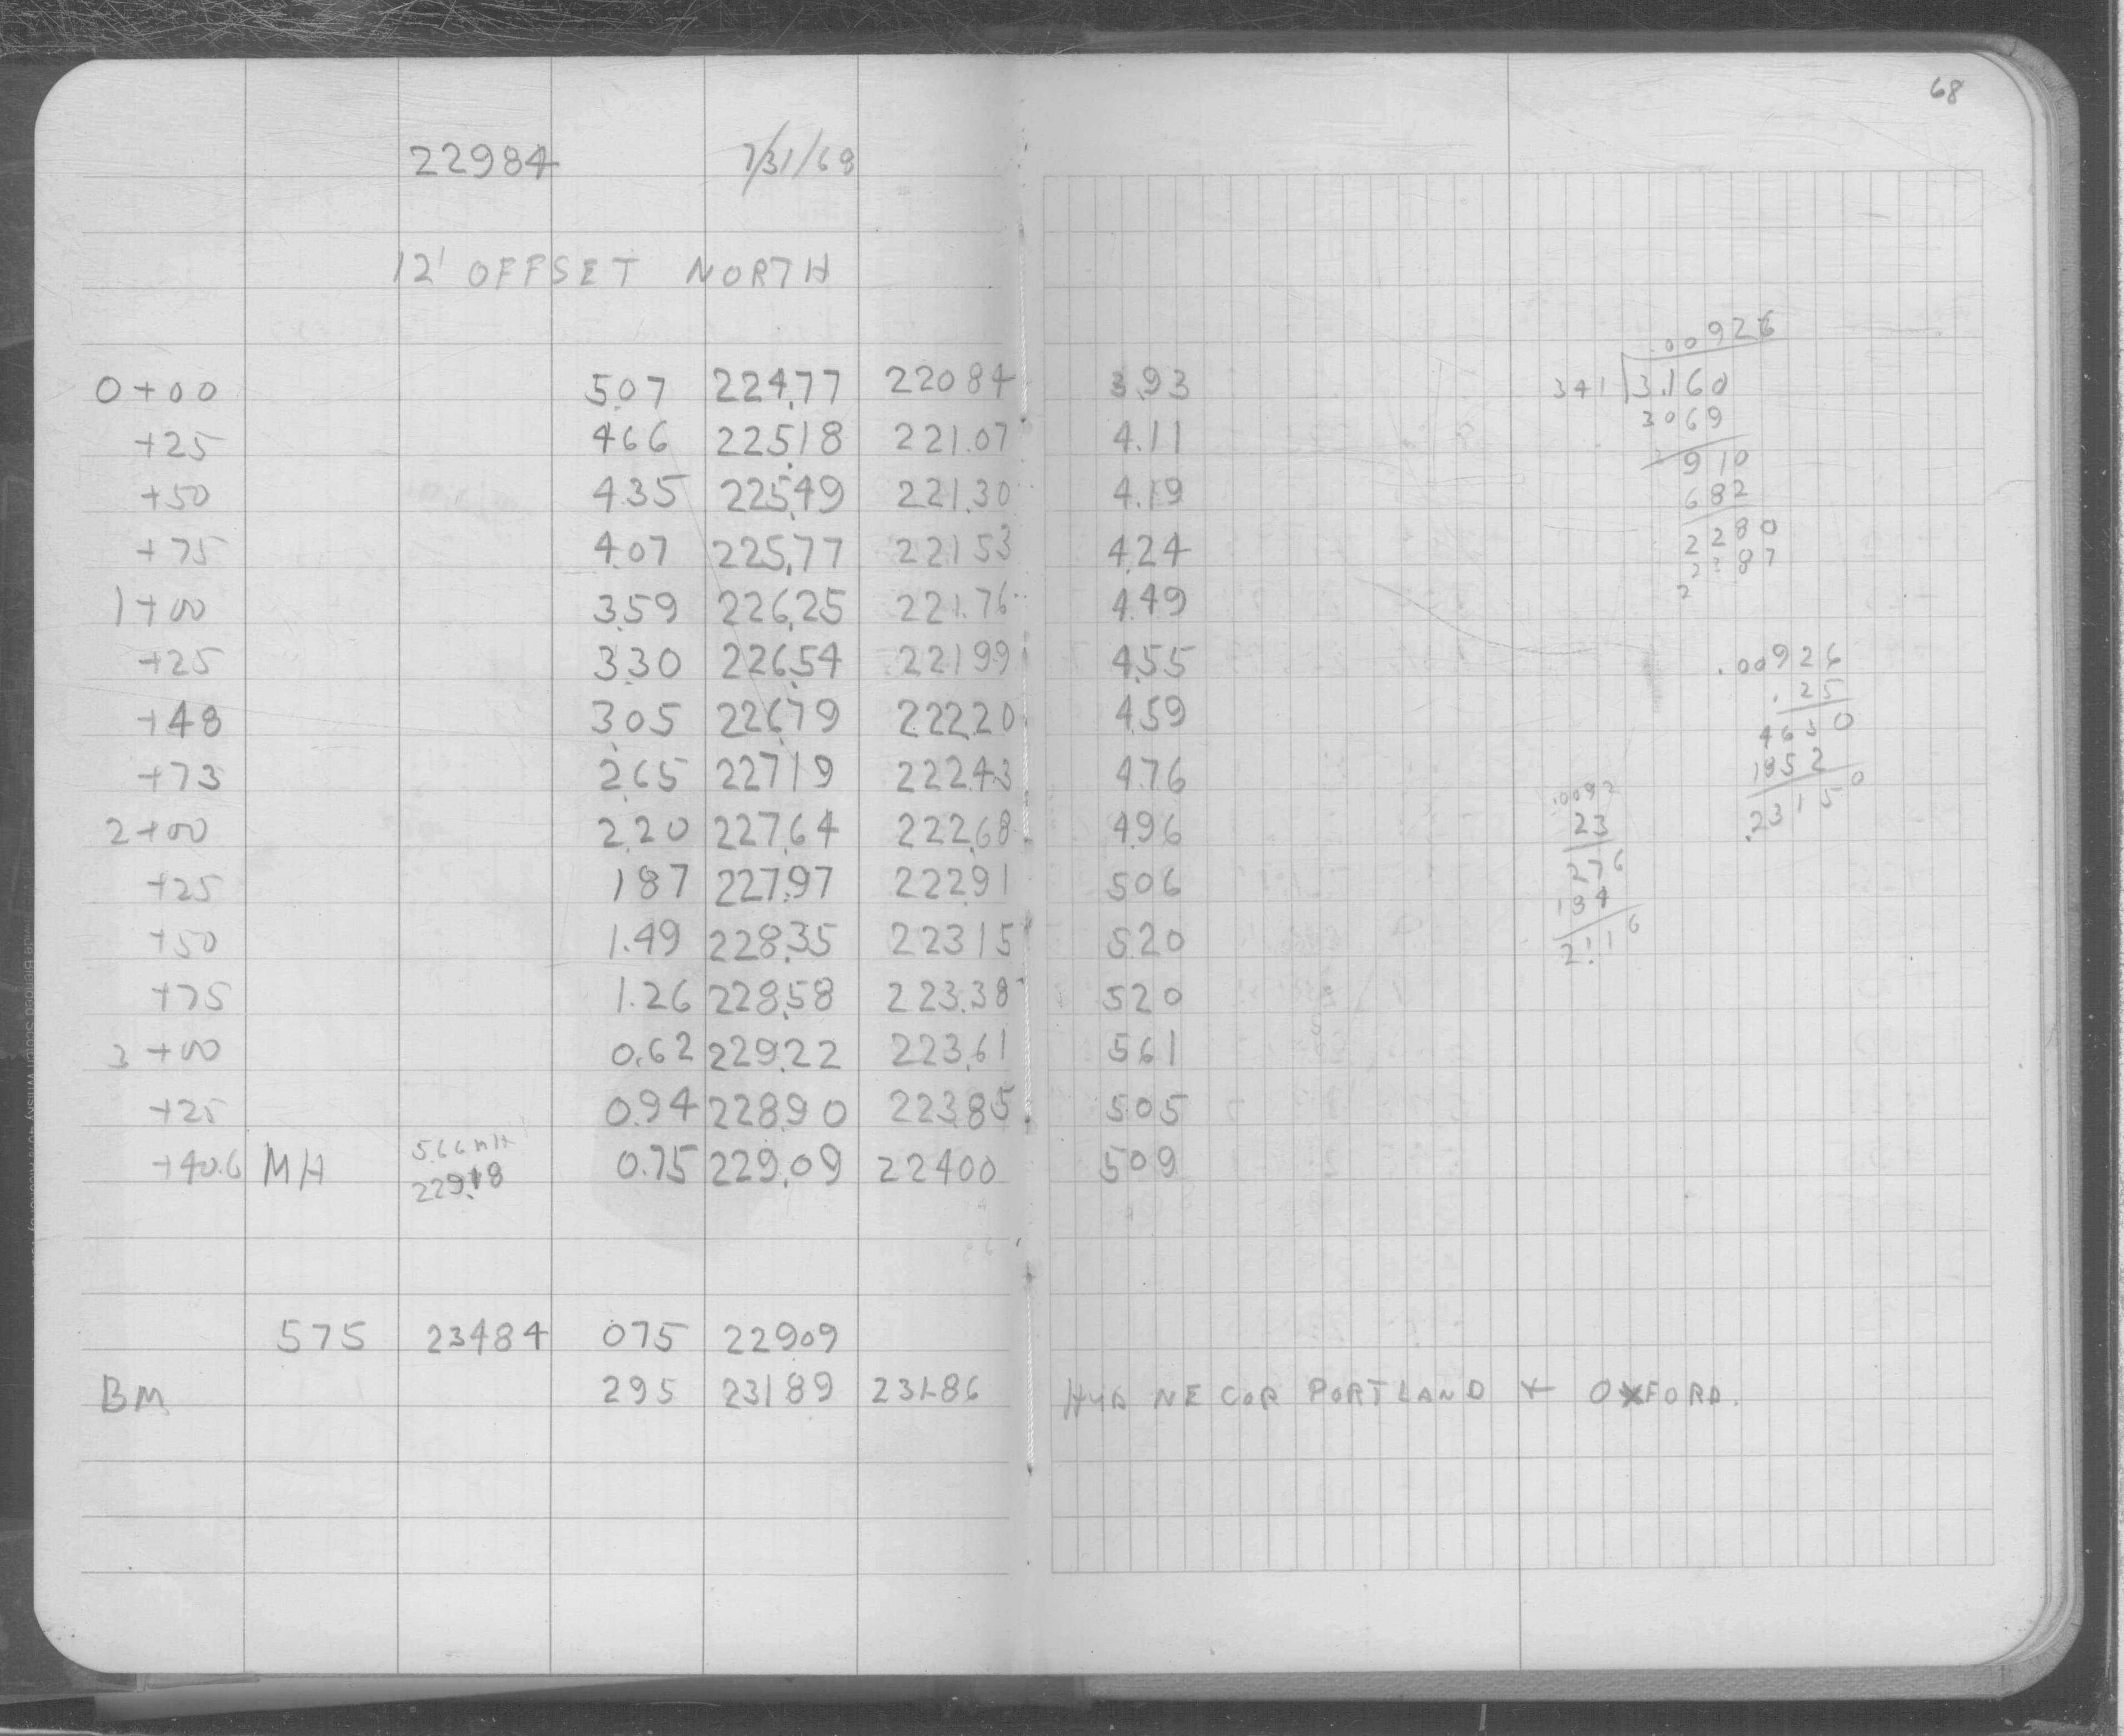 68
22984 7/31/68
12' OFFSET NORTH
0+00 5.07 224.77 22084 3.93
+25 466 225.18 221.07 4.11
+50 4.35 225.49 221.30 4.19
+75 4.07 225.77 22153 4.24
1+00 3.59 226.25 221.76 4.49
+25 3.30 226.54 22199 4.55
+48 3.05 226.79 222.20 4.59
+73 2.65 22719 222.43 4.76
2+00 2.20 227.64 222.68 4.96
+25 187 227.97 222.91 506
+50 1.49 228.35 22315 5.20
+75 1.26 228.58 223.38 520
3+00 0.62 229.22 223.61 561
+25 0.94 228.90 223.85 505
+40.6 MH 5.66 MH 0.75 229.09 22400 509
229.18
575 23484 075 22909
BM 295 23189 231.86 HYD NE COR PORTLAND + OXFORD.
.00926
341 3.160
3069
910
682
2280
.00926
.25
4630
1852
.23150
.0092
23
276
184
2.116